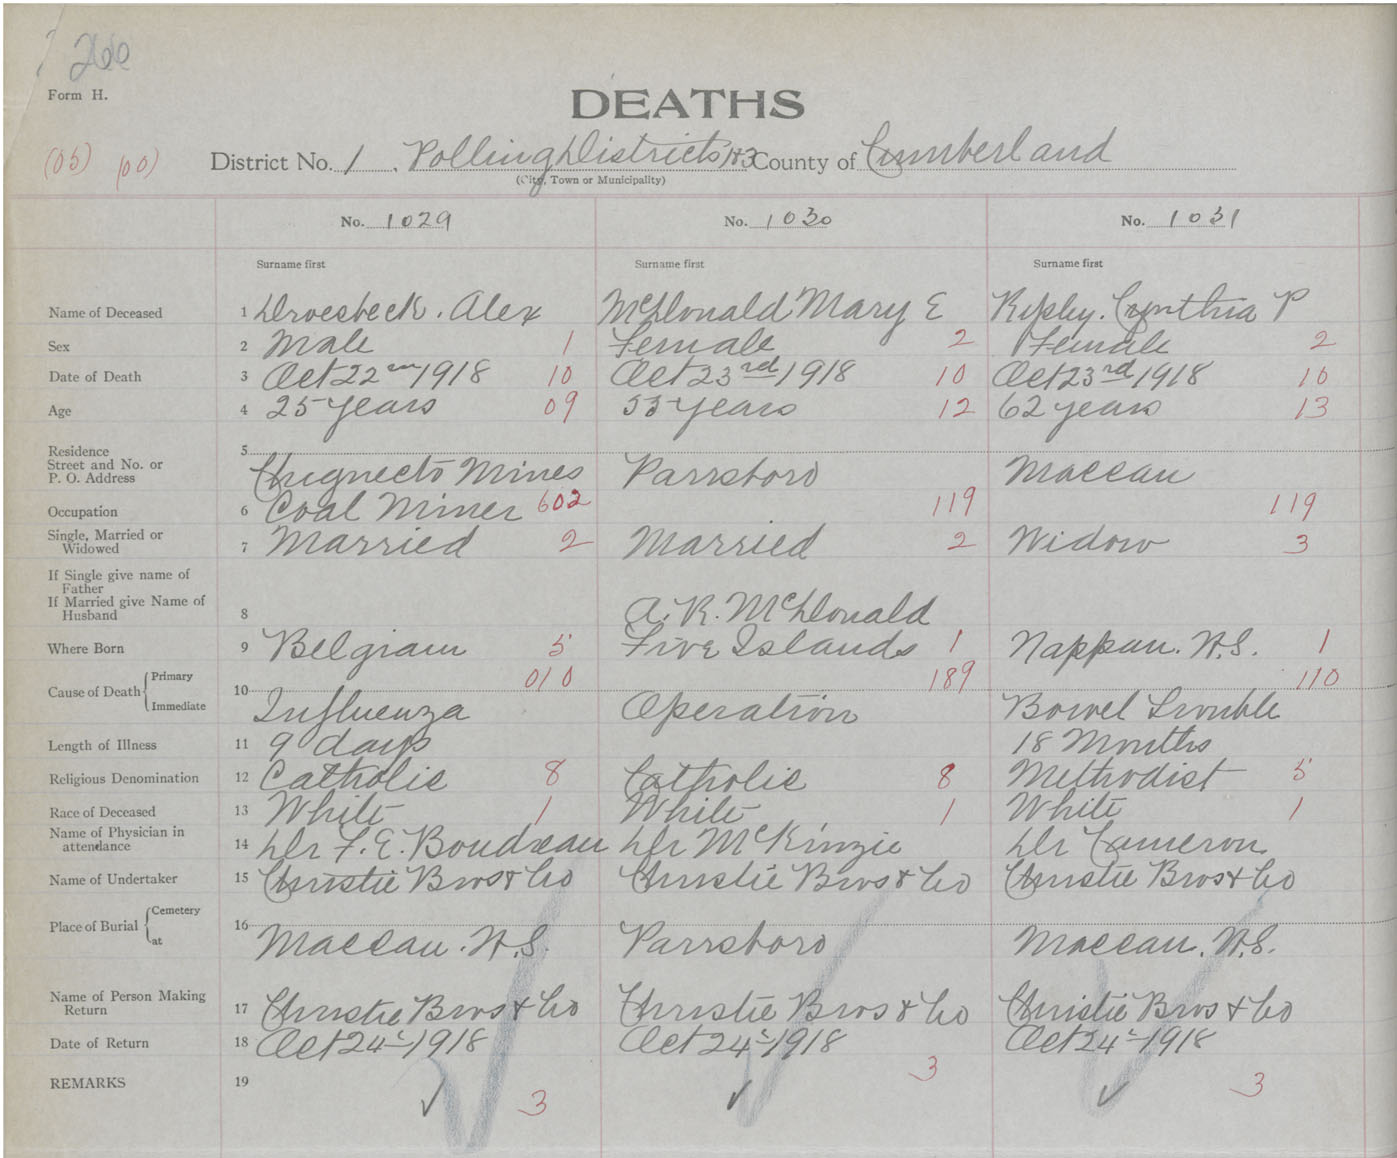 260
Form H.
DEATHS
(05) 00)
District No. 1, Polling Districts 1+3 County of Cumberland
(City, Town or Municipality)
No. 1029 No. 1030 No. 1031
Surname first Surname first Surname first
Name of Deceased 1 Droesbeck. Alex McDonald Mary E Ripley. Cynthia P
Sex 2 Male 1 Female 2 Female 2
Date of Death 3 Oct 22nd 1918 10 Oct 23rd 1918 10 Oct 23rd 1918 10
Age 4 25 years 09 55 years 12 62 years 13
Residence 5
Street and No. or
P. O. Address Chignecto Mines Parrsboro Maccan
Occupation 6 Coal Miner 602 119 119
Single, Married or
Widowed 7 Married 2 Married 2 Widow 3
If Single give name of
Father
If Married give Name of
Husband 8 A. R. McDonald
Where Born 9 Belgiam 5 Five Islands 1 Nappan. N.S. 1
010 189 110
Cause of Death { Primary
Immediate 10 Influenza Operation Bowel Trouble
Length of Illness 11 9 days 18 Months
Religious Denomination 12 Catholic 8 Catholic 8 Methodist 5
Race of Deceased 13 White 1 White 1 White 1
Name of Physician in
attendance 14 Dr F. E. Boudreau Dr McKinzie Dr Cameron
Name of Undertaker 15 Christie Bros & Co Christie Bros & Co Christie Bros & Co
Place of Burial { Cemetery
at 16 Maccan. N.S. Parrsboro Maccan. N.S.
Name of Person Making
Return 17 Christie Bros & Co Christie Bros & Co Christie Bros & Co
Date of Return 18 Oct 24th 1918 Oct 24th 1918 Oct 24th 1918
REMARKS 19 ✓ 3 ✓ 3 ✓ 3